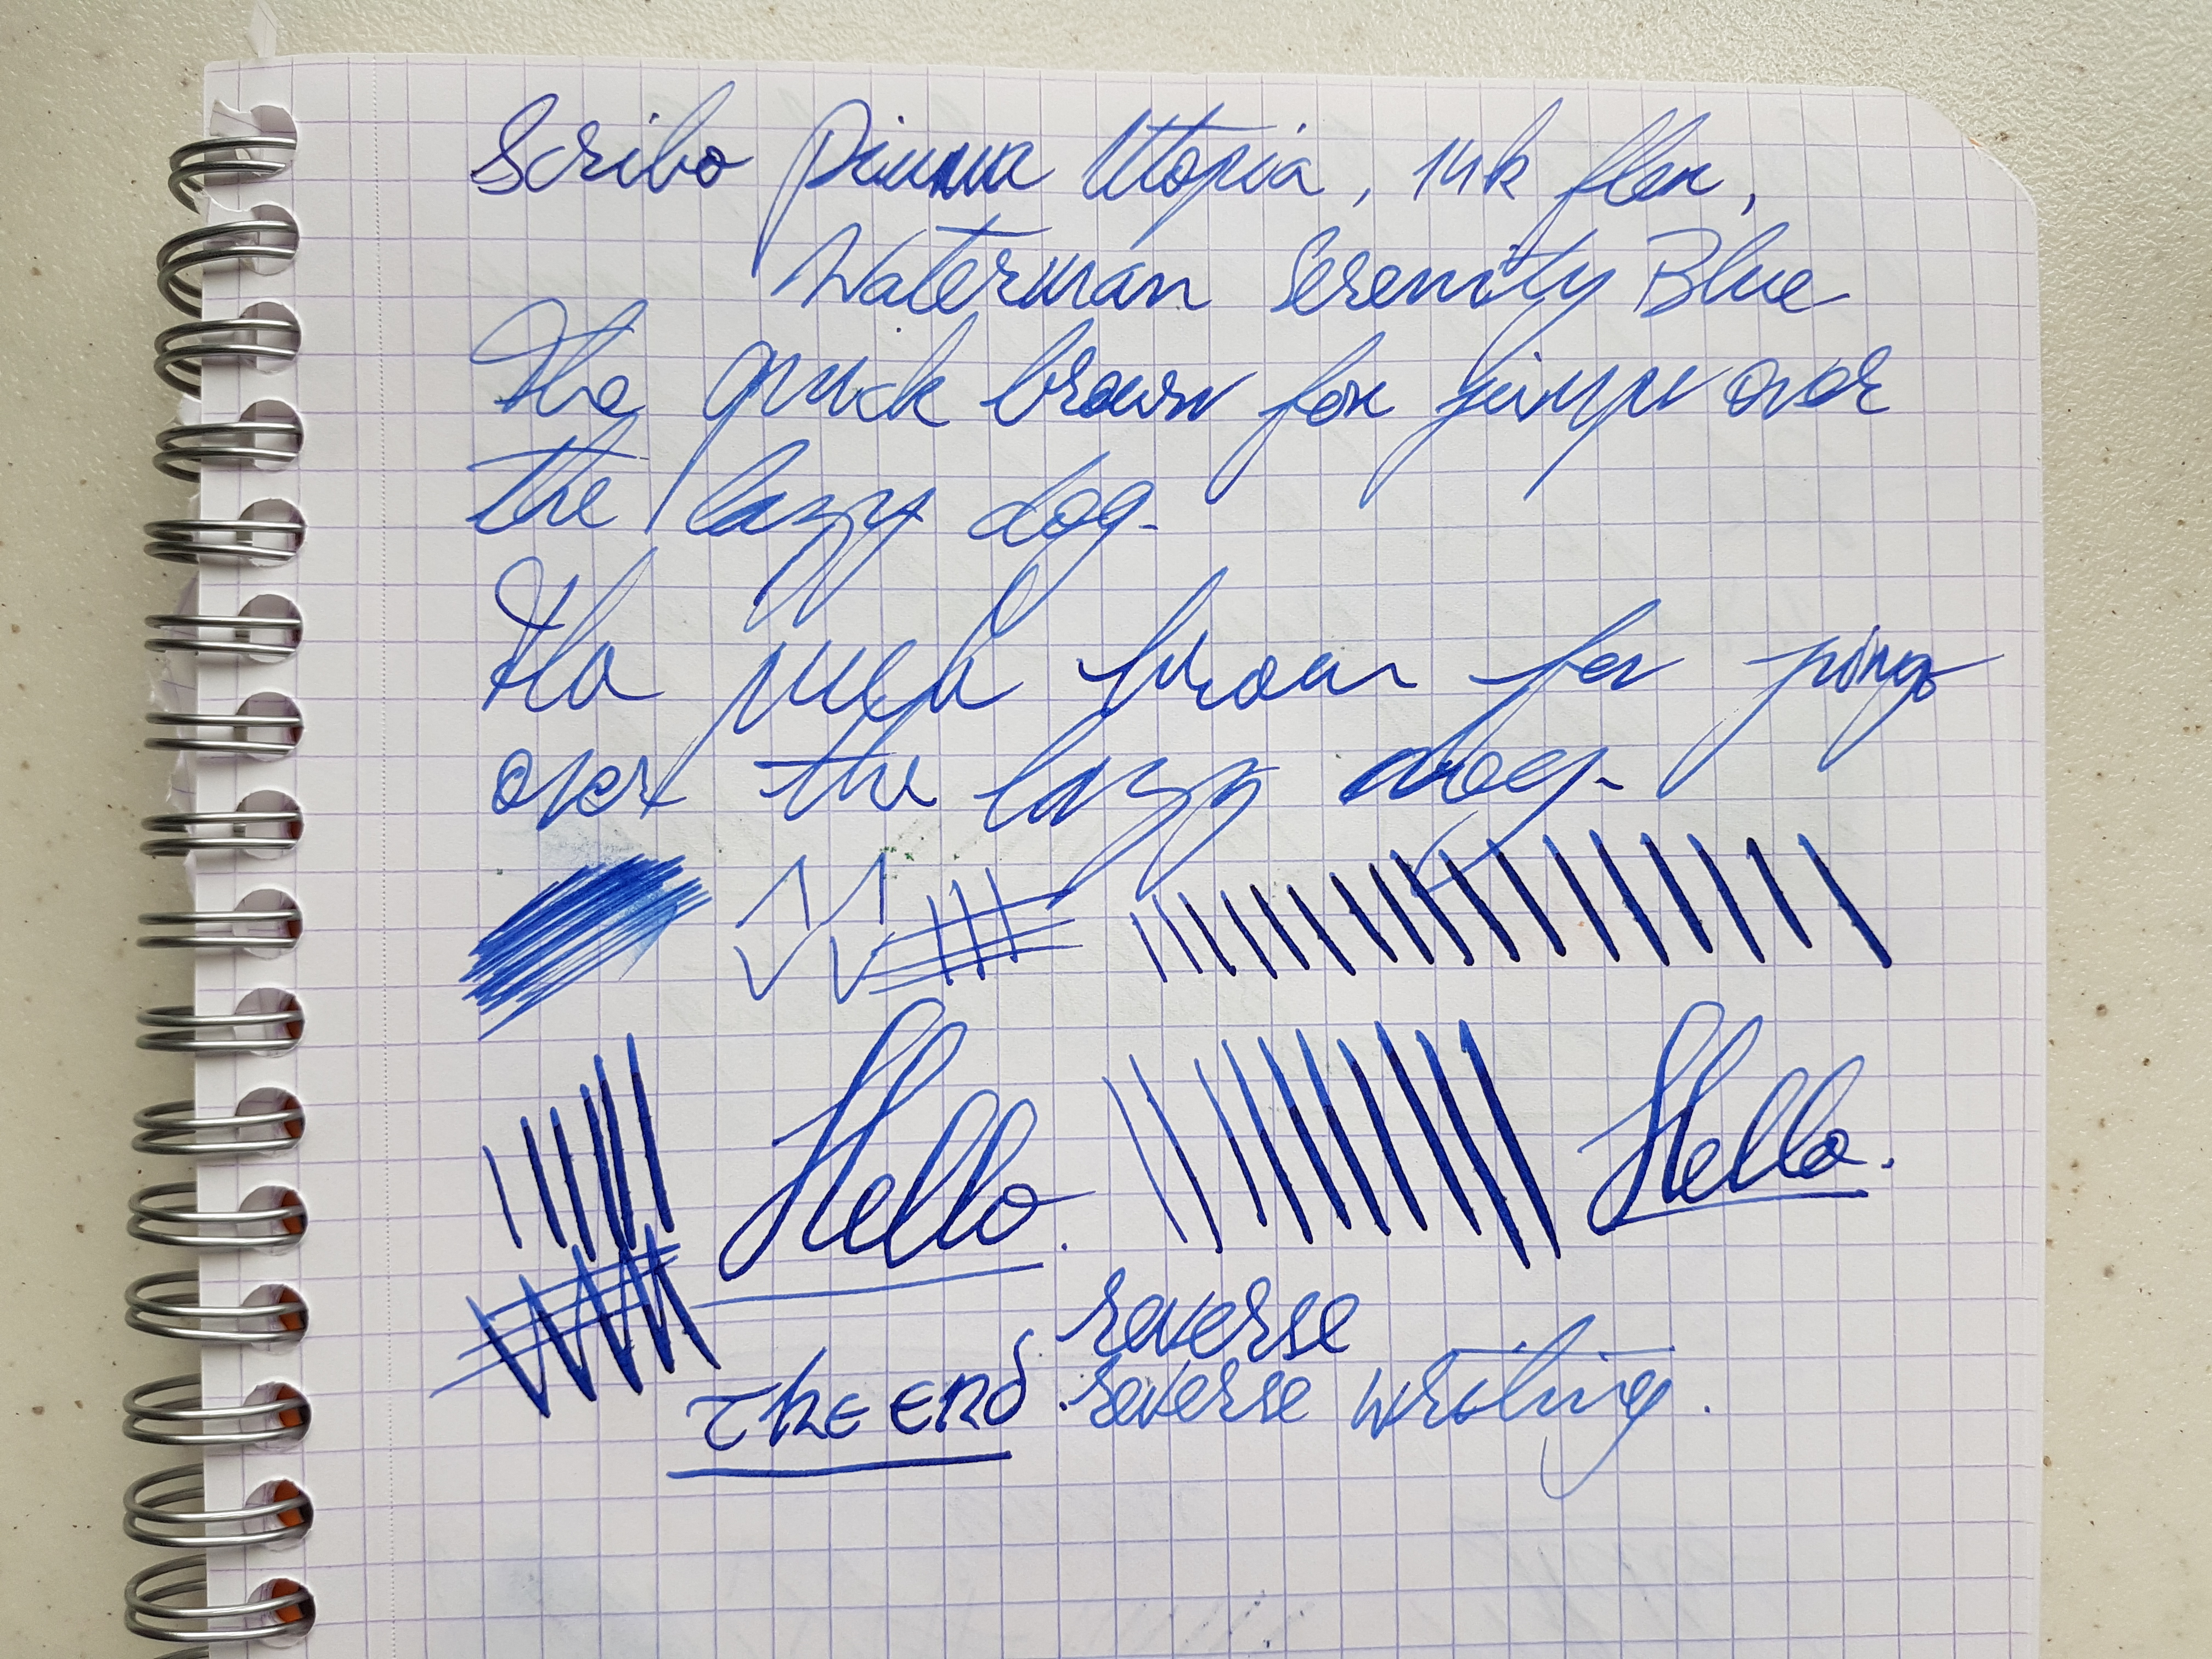 Scribo Piuma Utopia, 14k flex,
Waterman Serenity Blue
The quick brown fox jumps over
the lazy dog.
The quick brown fox jumps
over the lazy dog.
Hello.
Hello.
reverse
The end
reverse writing.